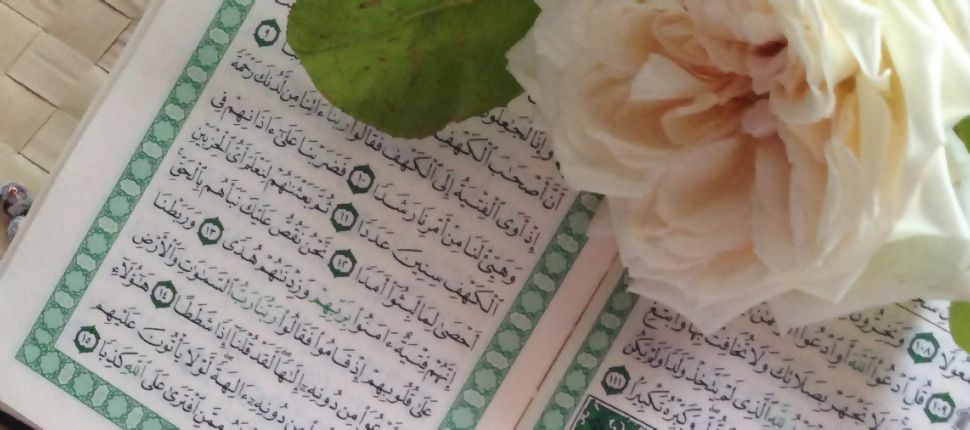 وَإِنَّا لَجَـٰعِلُونَ
أَنَّ أَصْحَـٰبَ ٱلْكَهْفِ
إِذْ أَوَى ٱلْفِتْيَةُ إِلَى ٱلْكَهْفِ فَقَالُوا۟ رَبَّنَآ ءَاتِنَا مِن لَّدُنكَ رَحْمَةً
وَهَيِّئْ لَنَا مِنْ أَمْرِنَا رَشَدًا ١٠ فَضَرَبْنَا عَلَىٰٓ ءَاذَانِهِمْ فِى
ٱلْكَهْفِ سِنِينَ عَدَدًا ١١ ثُمَّ بَعَثْنَـٰهُمْ لِنَعْلَمَ أَىُّ ٱلْحِزْبَيْنِ
أَحْصَىٰ لِمَا لَبِثُوٓا۟ أَمَدًا ١٢ نَّحْنُ نَقُصُّ عَلَيْكَ نَبَأَهُم بِٱلْحَقِّ
إِنَّهُمْ فِتْيَةٌ ءَامَنُوا۟ بِرَبِّهِمْ وَزِدْنَـٰهُمْ هُدًى ١٣ وَرَبَطْنَا
عَلَىٰ قُلُوبِهِمْ إِذْ قَامُوا۟ فَقَالُوا۟ رَبُّنَا رَبُّ ٱلسَّمَـٰوَٰتِ وَٱلْأَرْضِ
مِن دُونِهِۦٓ إِلَـٰهًا لَّقَدْ قُلْنَآ إِذًا شَطَطًا ١٤ هَـٰٓؤُلَآءِ
دُونِهِۦٓ ءَالِهَةً لَّوْلَا يَأْتُونَ عَلَيْهِم
مِمَّنِ ٱفْتَرَىٰ عَلَى ٱللَّهِ كَذِبًا ١٥
١٠٨ وَيَخِرُّونَ
١٠٩ قُلِ ٱدْعُوا۟ ٱللَّهَ أَوِ ٱدْعُوا۟
وَلَا تَجْهَرْ بِصَلَاتِكَ وَلَا تُخَافِتْ بِهَا وَٱبْتَغِ
لِلَّهِ ٱلَّذِى لَمْ يَتَّخِذْ وَلَدًا وَلَمْ يَكُن
وَكَبِّرْهُ تَكْبِيرًا ١١١